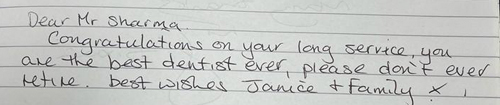 Dear Mr Sharma.
Congratulations on your long service, you
are the best dentist ever, please don't ever
retire. best wishes Janice & family x